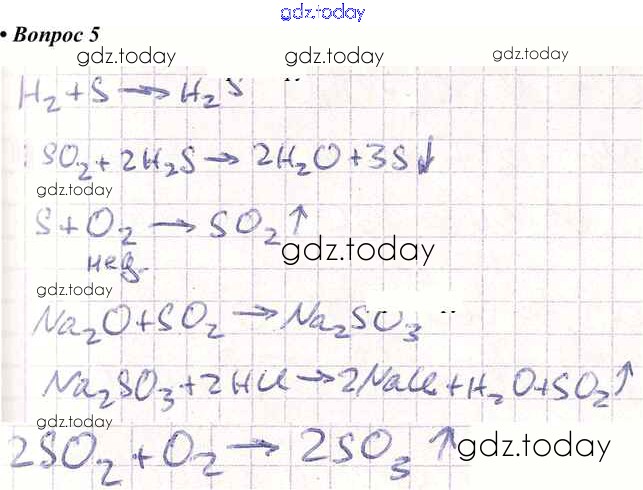 gdz.today
• Вопрос 5
gdz.today gdz.today gdz.today
H₂ + S → H₂S
SO₂ + 2H₂S → 2H₂O + 3S↓
gdz.today
S + O₂ → SO₂↑
gdz.today
нед.
gdz.today
Na₂O + SO₂ → Na₂SO₃
Na₂SO₃ + 2HCl → 2NaCl + H₂O + SO₂↑
gdz.today
2SO₂ + O₂ → 2SO₃↑
gdz.today